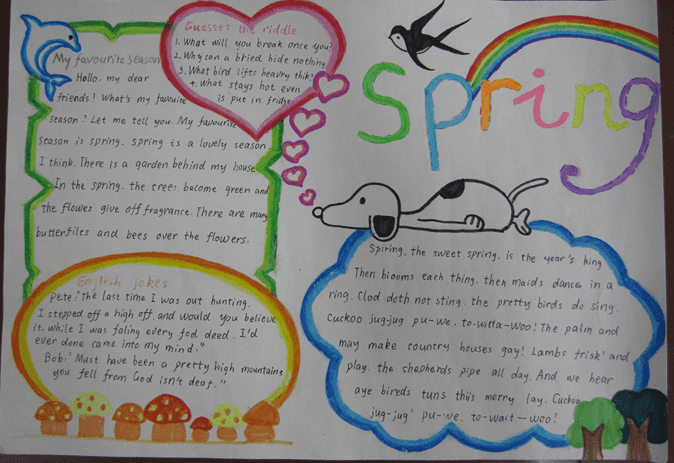 My favourite season
Hello, my dear
friends! What's my favouite
season? Let me tell you. My favourite
season is spring. spring is a lovely season.
I think. There is a garden behind my house
In the spring. the trees. become green and
the flowes give off fragrance. There are many
butterfiles and bees over the flowers.
Guesses the riddle
1. What will you break once you?
2. Why can a bried hide nothing
3. What bird lifts heavry thik?
4. What stays hot even
is put in fridge
Spring
English jokes
Pete: "The last time I was out hunting.
I stepped off a high off. and would you believe
it. while I was faling every fod deed. I'd
ever done came into my mind."
Bob: 'Must have been a pretty high mountains
you fell from God isn't deaf."
Spiring, the sweet spring. is the year's king
Then blooms each thing. then maids dance in a
ring. Clod doth not sting. the pretty birds do sing.
Cuckoo jug-jug pu-we. to-witta-woo! The palm and
may make country houses gay! Lambs frisk' and
play. the shepherds pipe all day. And we hear
aye bireds tuns this merry lay. Cuckoo
jug-jug' pu-we. to-wait-woo!